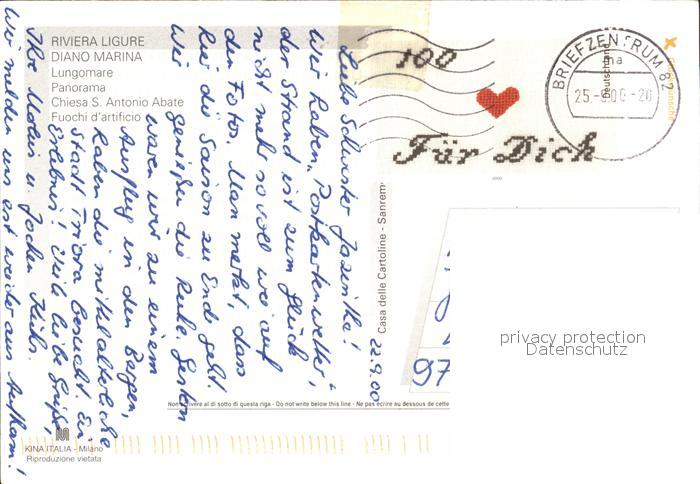 RIVIERA LIGURE
DIANO MARINA
Lungomare
Panorama
Chiesa S. Antonio Abate
Fuochi d'artificio
100
Für Dich
Deutschland
BRIEFZENTRUM 82
na
25.-9.00-20
22.9.00
Liebe Schwester
wir haben „Postkartenwetter",
der Strand ist zum Glück
nicht mehr so voll wie auf
den Fotos. Man merkt, dass
hier die Saison zu End geht.
Wir genießen die Ruhe. Gestern
waren wir zu einem
Ausflug in den Bergen,
haben die mittelalterliche
Stadt Triora besucht. Ein
Erlebnis! Viele liebe Grüße,
Ihre Maria u. Jochen
Wir melden uns erst wieder aus
Casa delle Cartoline - Sanremo
97
privacy protection
Datenschutz
Non scrivere al di sotto di questa riga - Do not write below this line - Ne pas écrire au dessous de cette
KINA ITALIA - Milano
Riproduzione vietata